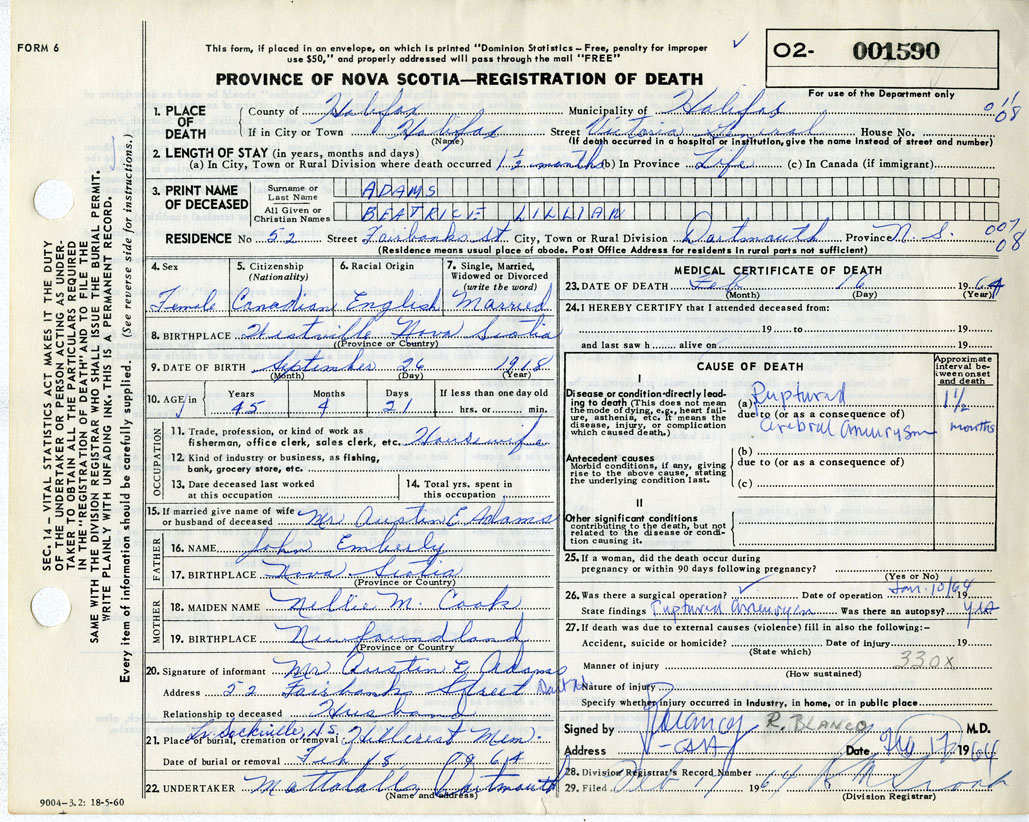 FORM 6
This form, if placed in an envelope, on which is printed "Dominion Statistics – Free, penalty for improper
use $50," and properly addressed will pass through the mail "FREE"
✓
O2- 001590
For use of the Department only
PROVINCE OF NOVA SCOTIA—REGISTRATION OF DEATH
SEC. 14 – VITAL STATISTICS ACT MAKES IT THE DUTY
OF THE UNDERTAKER OR PERSON ACTING AS UNDER-
TAKER TO OBTAIN ALL THE PARTICULARS REQUIRED
IN THE "REGISTRATION OF DEATH" AND TO FILE THE
SAME WITH THE DIVISION REGISTRAR WHO SHALL ISSUE THE BURIAL PERMIT.
WRITE PLAINLY WITH UNFADING INK. THIS IS A PERMANENT RECORD.
Every item of information should be carefully supplied. (See reverse side for instructions.)
1. PLACE OF DEATH County of Halifax Municipality of Halifax 011
08
If in City or Town Halifax Street Victoria General House No.
(Name) (If death occurred in a hospital or institution, give the name instead of street and number)
2. LENGTH OF STAY (in years, months and days)
(a) In City, Town or Rural Division where death occurred 1½ months (b) In Province Life (c) In Canada (if immigrant)
3. PRINT NAME OF DECEASED Surname or Last Name ADAMS
All Given or Christian Names BEATRICE LILLIAN
RESIDENCE No 52 Street Fairbanks St City, Town or Rural Division Dartmouth Province N.S. 007
08
(Residence means usual place of abode. Post Office Address for residents in rural parts not sufficient)
4. Sex 5. Citizenship (Nationality) 6. Racial Origin 7. Single, Married, Widowed or Divorced (write the word)
Female Canadian English Married
8. BIRTHPLACE Westville Nova Scotia
(Province or Country)
9. DATE OF BIRTH September 26 1918
(Month) (Day) (Year)
10. AGE in Years Months Days If less than one day old
45 4 21 hrs. or min.
OCCUPATION
11. Trade, profession, or kind of work as
fisherman, office clerk, sales clerk, etc. Housewife
12. Kind of industry or business, as fishing,
bank, grocery store, etc.
13. Date deceased last worked
at this occupation
14. Total yrs. spent in
this occupation
15. If married give name of wife
or husband of deceased Mr Austin E. Adams
FATHER
16. NAME John Emberly
17. BIRTHPLACE Nova Scotia
(Province or Country)
MOTHER
18. MAIDEN NAME Nellie M. Cook
19. BIRTHPLACE Newfoundland
(Province or Country
20. Signature of informant Mr Austin E. Adams
Address 52 Fairbanks Street
Relationship to deceased Husband
Sackville, N.S.
21. Place of burial, cremation or removal Hillcrest Mem.
Date of burial or removal Feb 18, 1964
22. UNDERTAKER Mattatall Dartmouth
(Name and address)
9004–3.2: 18-5-60
MEDICAL CERTIFICATE OF DEATH
23. DATE OF DEATH Feb 16 1964
(Month) (Day) (Year)
24. I HEREBY CERTIFY that I attended deceased from:
19 to 19
and last saw h alive on 19
CAUSE OF DEATH
Approximate interval between onset and death
I
Disease or condition directly leading to death (This does not mean the mode of dying, e.g., heart failure, asthenia, etc. It means the disease, injury, or complication which caused death.)
(a) Ruptured 1½
due to (or as a consequence of)
Cerebral Aneurysm months
Antecedent causes
Morbid conditions, if any, giving rise to the above cause, stating the underlying condition last.
(b)
due to (or as a consequence of)
(c)
II
Other significant conditions
contributing to the death, but not related to the disease or condition causing it.
25. If a woman, did the death occur during
pregnancy or within 90 days following pregnancy?
(Yes or No)
26. Was there a surgical operation? ✓ Date of operation Jan. 10/64
State findings Ruptured Aneurysm Was there an autopsy? yes
27. If death was due to external causes (violence) fill in also the following:–
Accident, suicide or homicide? Date of injury 19
(State which)
330X
Manner of injury
(How sustained)
Nature of injury
Specify whether injury occurred in Industry, in home, or in public place
Signed by R. BLANCO M.D.
Address Date Feb 17 1964
28. Division Registrar's Record Number
29. Filed Feb 17 1964
(Division Registrar)